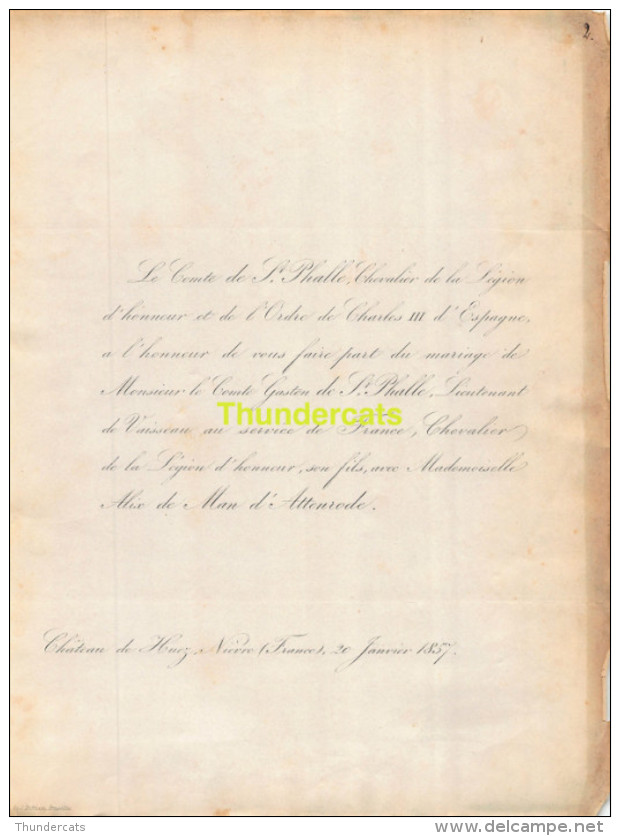 2.
Le Comte de S.t Phalle, Chevalier de la Légion
d'honneur et de l'Ordre de Charles III d'Espagne,
a l'honneur de vous faire part du mariage de
Monsieur le Comte Gaston de S.t Phalle, Lieutenant
Thundercats
de Vaisseau au service de France, Chevalier
de la Légion d'honneur, son fils, avec Mademoiselle
Alix de Man d'Attenrode.
Château de Huez, Nièvre (France), 20 Janvier 1857.
Thundercats
delcampe.net